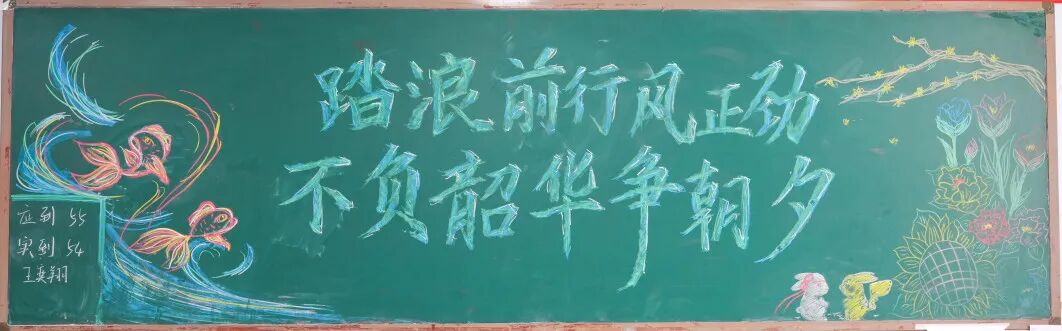 踏浪前行风正劲
不负韶华争朝夕
应到 55
实到 54
王英翔